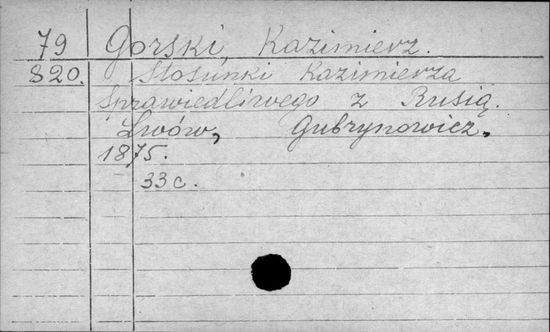 79 Gorski, Kazimierz.
820. Stosunki Kazimierza
Sprawiedliwego z Rusią.
Lwów, Gubrynowicz.
1875.
33 c.